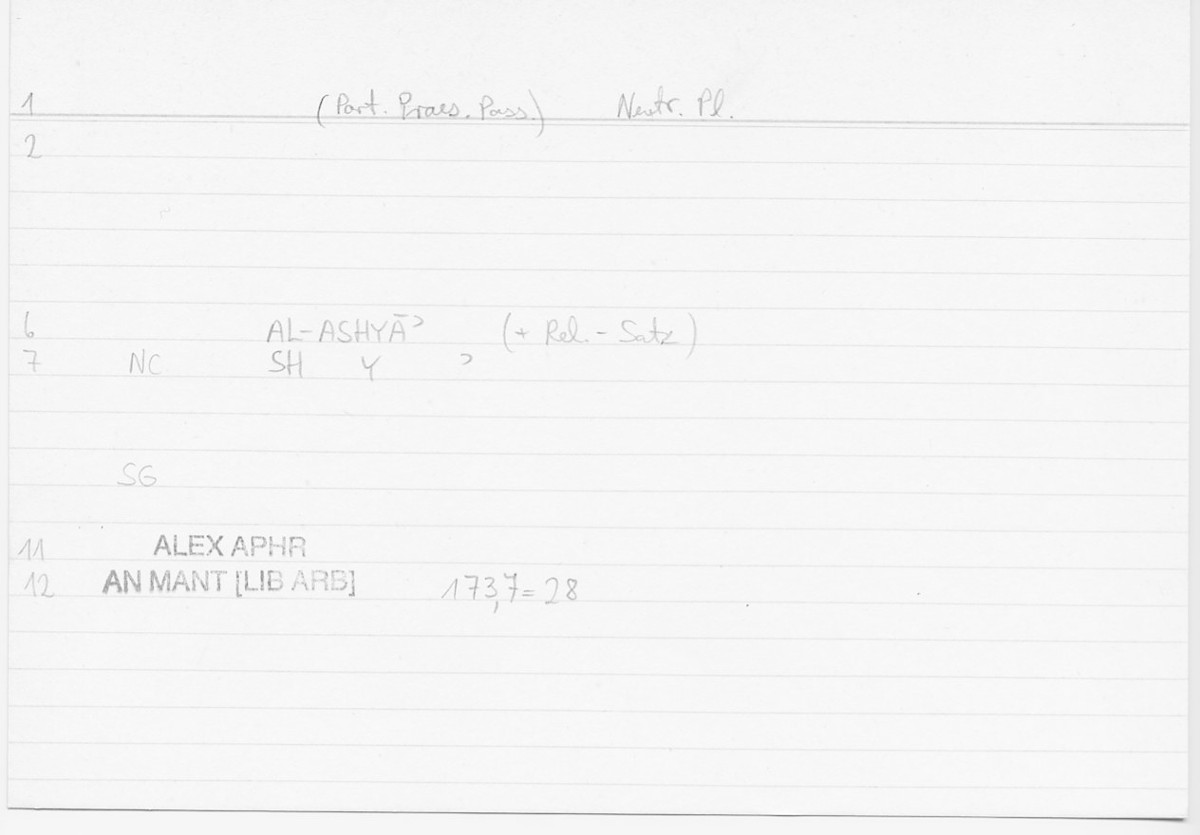 1 (Part. Praes. Pass.) Neutr. Pl.
2
6 AL-ASHYĀʾ (+ Rel.-Satz)
7 NC SH Y ʾ
SG
11 ALEX APHR
12 AN MANT [LIB ARB] 173,7=28